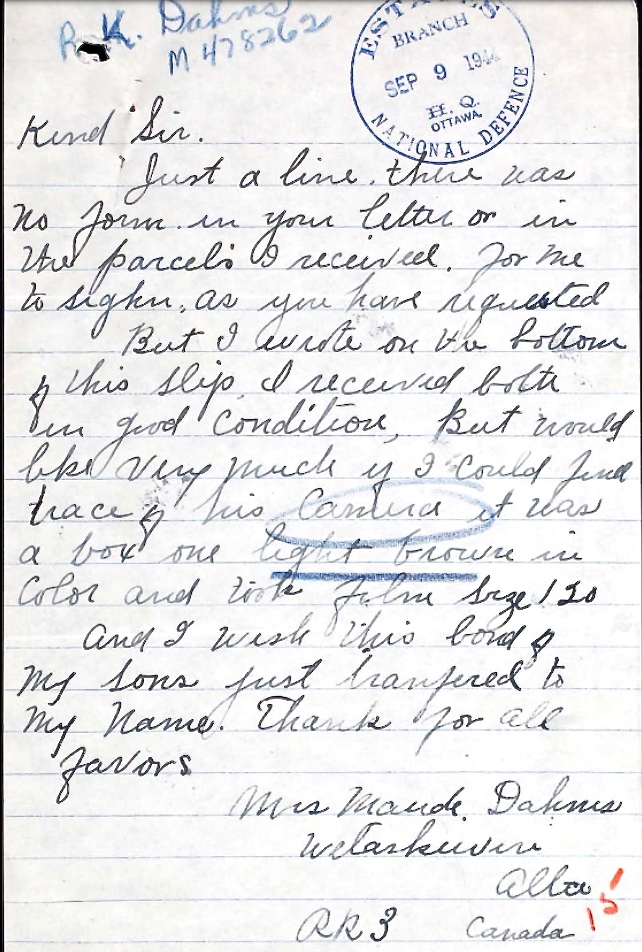 R. K. Dahms
M 478262
ESTATES
BRANCH
SEP 9 194
H. Q.
OTTAWA.
NATIONAL DEFENCE
Kind Sir.
Just a line. there was
no form in your letter or in
the parcels I received. for me
to sighn, as you have requested
But I wrote on the bottom
of this slip, I received both
in good condition, But would
like very much if I could find
trace of his Camera it was
a box one light brown in
Color and took film size 120
And I wish this bond of
My Sons just tranfered to
My Name. Thank for all
favors
Mrs Maude. Dahms
Wetaskewin
Alta
RR3 Canada
15